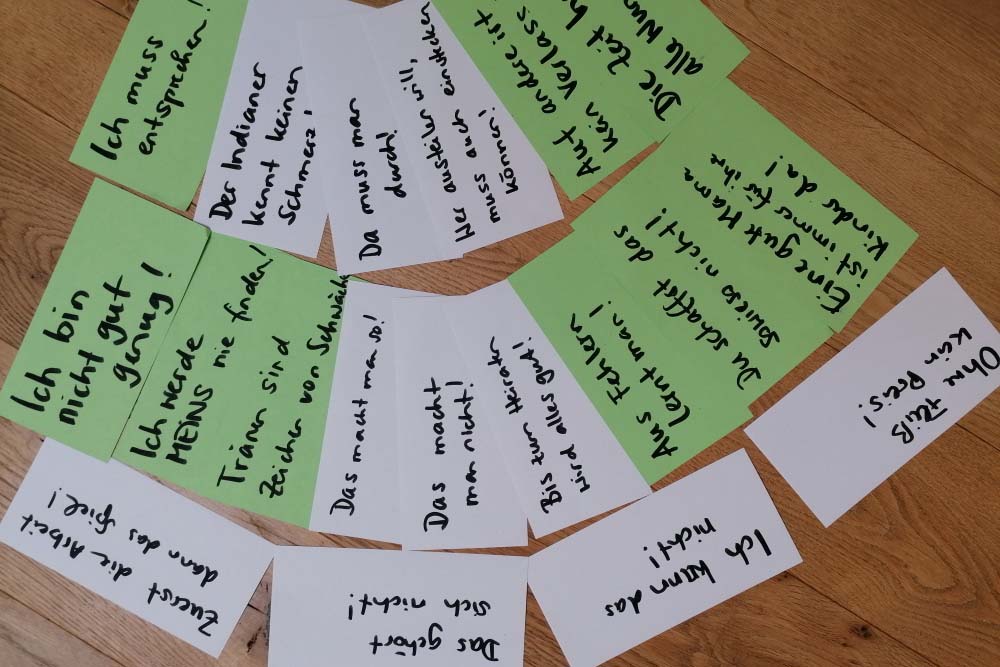 Ich muss
entsprechen!
Der Indianer
kennt keinen
Schmerz!
Da muss man
durch!
Wer austeilen will,
muss auch einstecken
können!
Auf andere ist
kein Verlass
Die Zeit
alle
Ich bin
nicht gut
genug!
Ich werde
MEINS nie finden!
Tränen sind
Zeichen von Schwäche
Das macht man so!
Das macht
man nicht!
Bis zum Heiraten
wird alles gut!
Aus Fehlern
lernt man!
Du schaffst das
sowieso nicht!
Eine gute Mama
ist immer für ihre
Kinder da!
Zuerst die Arbeit
dann das Spiel!
Das gehört
sich nicht!
Ich kann das
nicht!
Ohne Fleiß
kein Preis!